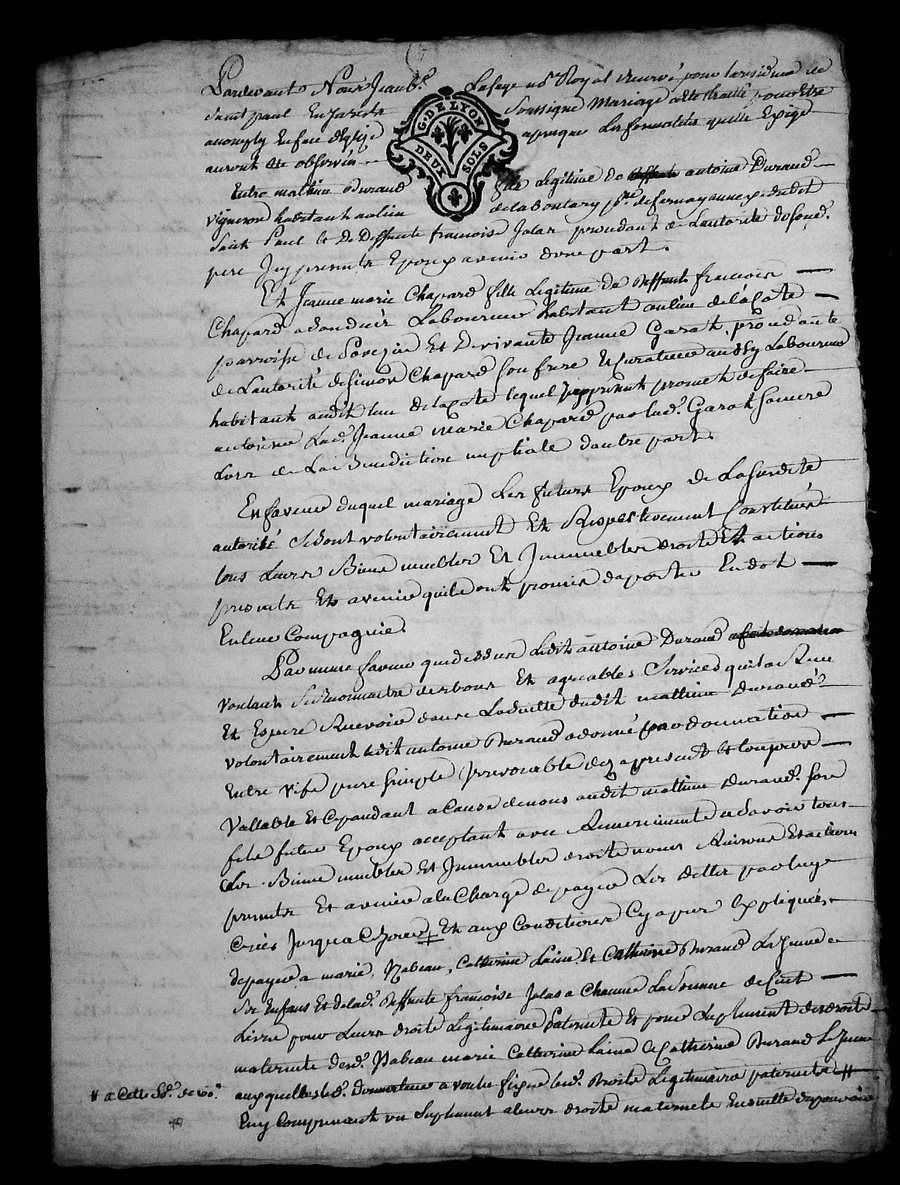 Pardevant Nous Jean B.e Lafaye n.re Royal reservé pour la residence de
Saint paul En Jarest Soussigné Mariage a ete traité pour Etre
accomply En face deglize apres que les formalités quelle Exige
auront été observés
G. DE LYON
DEUX SOLS
Entre mathieu Durand fils Legitime de antoine Durand
vigneron habitant au lieu de la Bontary p.sse de annexe dudit
Saint Paul et De Deffunte francoise Jolas procedant de Lautorité de son d.
pere Icy present Epoux avenir dune part.
Et Jeanne marie Chapard fille Legitime de Deffunt francois
Chapard Laboureur habitant au lieu de
parroisse de Pavezin Et De vivante Jeanne Garat, procedante
de Lautorité de Simon Chapard son frere Et Curateur aussy Laboureur
habitant audit lieu de lequel Icy present promet de faire
autoriser Lad. Jeanne Marie Chapard par lad. Garat sa mere
Lors de La Benediction nuptiale dautre part.
En faveur duquel mariage Les futurs Epoux de La susdite
autorité Se sont volontairement Et Respectivement Constitués
tous Leurs Biens meubles Et Immeubles droits Et actions
presents Et avenirs quils ont promis daporter En dot
En leur Compagnie.
Par meme faveur que dessus Ledit antoine Durand
voulant Se Reconnaitre des bons Et agreables Services quil a Reçu
Et Espere Recevoir dans La suitte dudit mathieu Durand
volontairement ledit antoine Durand a donné par donnation
Entre vifs pure simple Irrevocable des apresent et toujours
Vallable Et Cependant a Cause de nous audit mathieu Durand son
fils futur Epoux acceptant avec Remerciments a Savoir tous
Les Biens meubles Et Immeubles droits noms Raisons Et actions
presents Et avenirs a la Charge de payer Les dettes par luy
Créés Jusqua Et aux Conditions Cy apres Expliquées,
de payer a marie, Isabeau, Catherine Lainé, Et Catherine Durand La Jeune
Ses Enfans Et de lad. Deffunte francoise Jolas a Chacune La Somme de Cent
Livres pour Leurs droits Legitimaires paternels Et pour Suplement des droits
maternels desd. Isabeau marie Catherine Lainé Catherine Durand La Jeune
auxquelles led. a voulu figné led. Droits Legitimaires paternels #
En y Comprenant un Suplement a leurs droits maternels Ensuitte
# a Cette Sd. de 100.tt